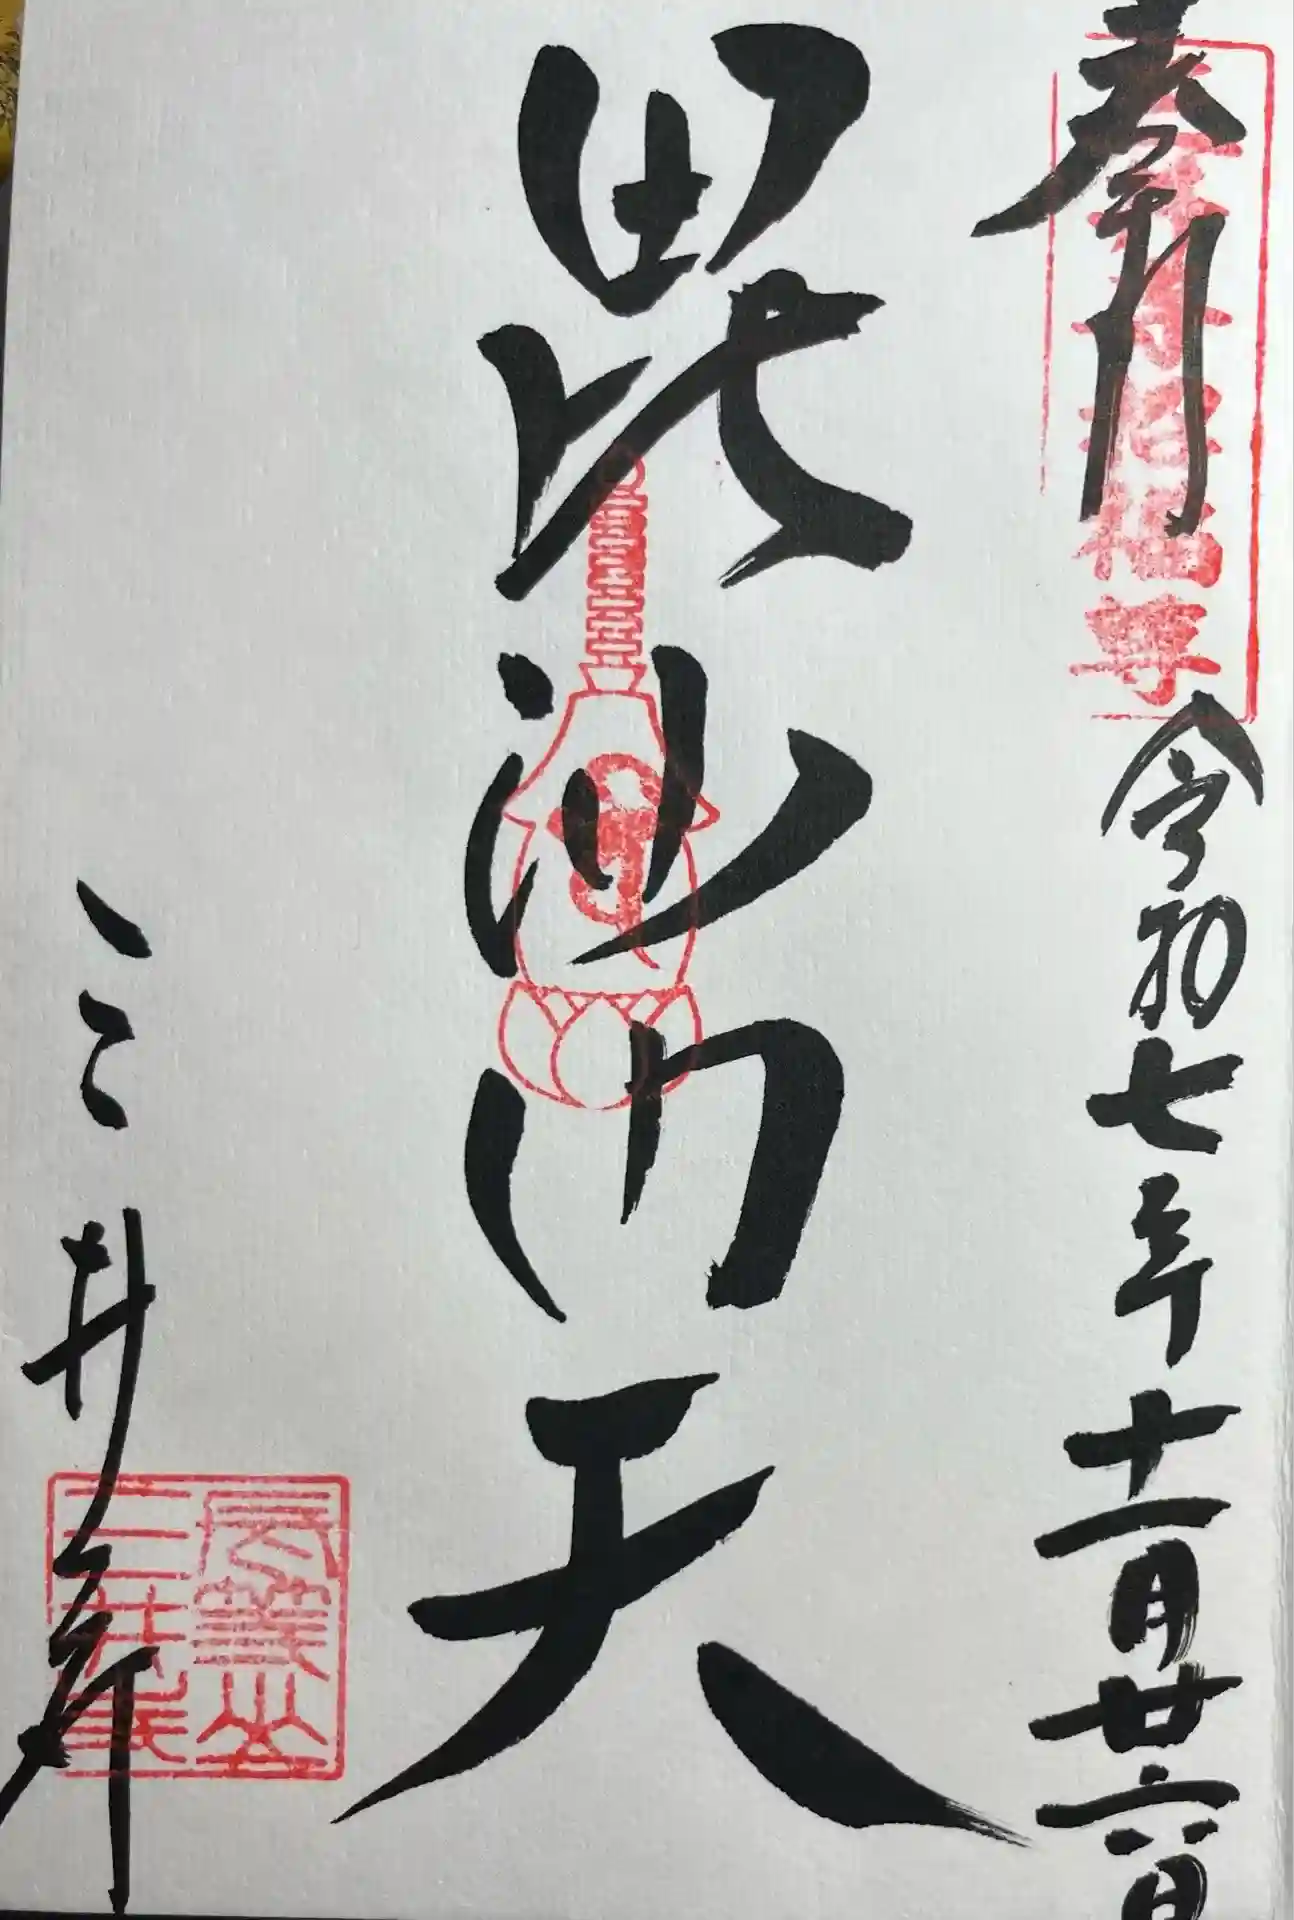 奉拝
令和七年十一月廿六日
毘沙門天
三井寺
長等山